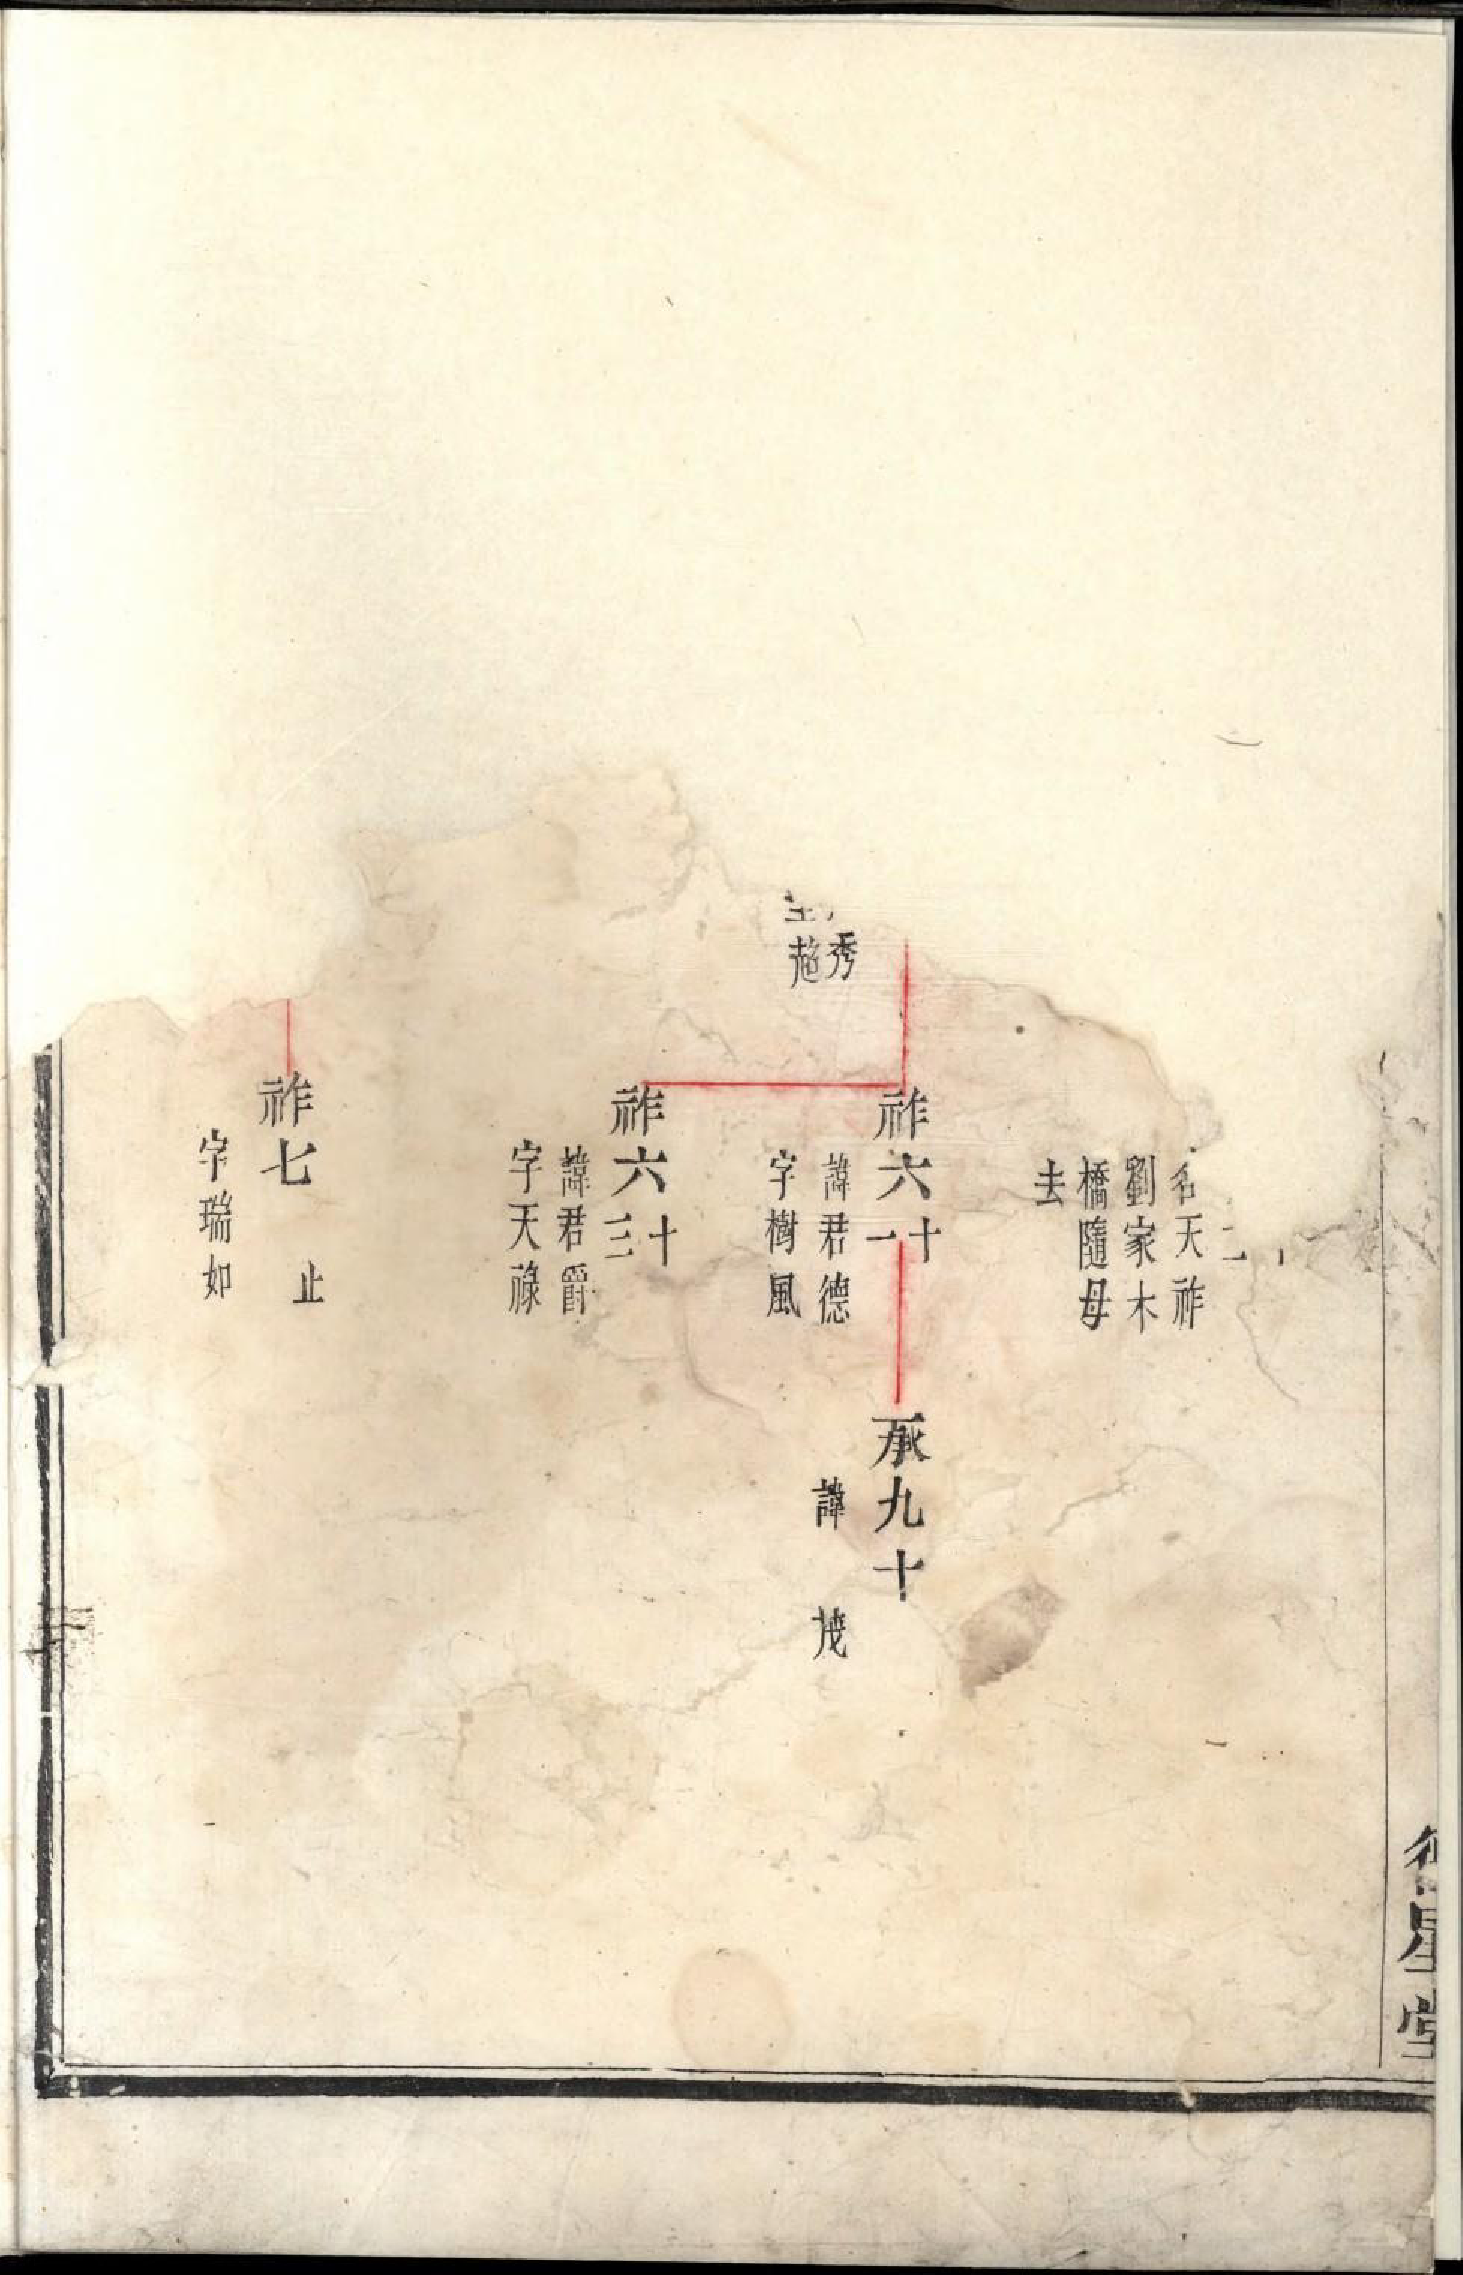 名天祚
劉家木
橋隨母
去
秀
趙
祚六十一
諱君德
字樹風
承九十
諱茂
祚六十三
諱君爵
字天祿
祚七
止
字瑞如
星堂